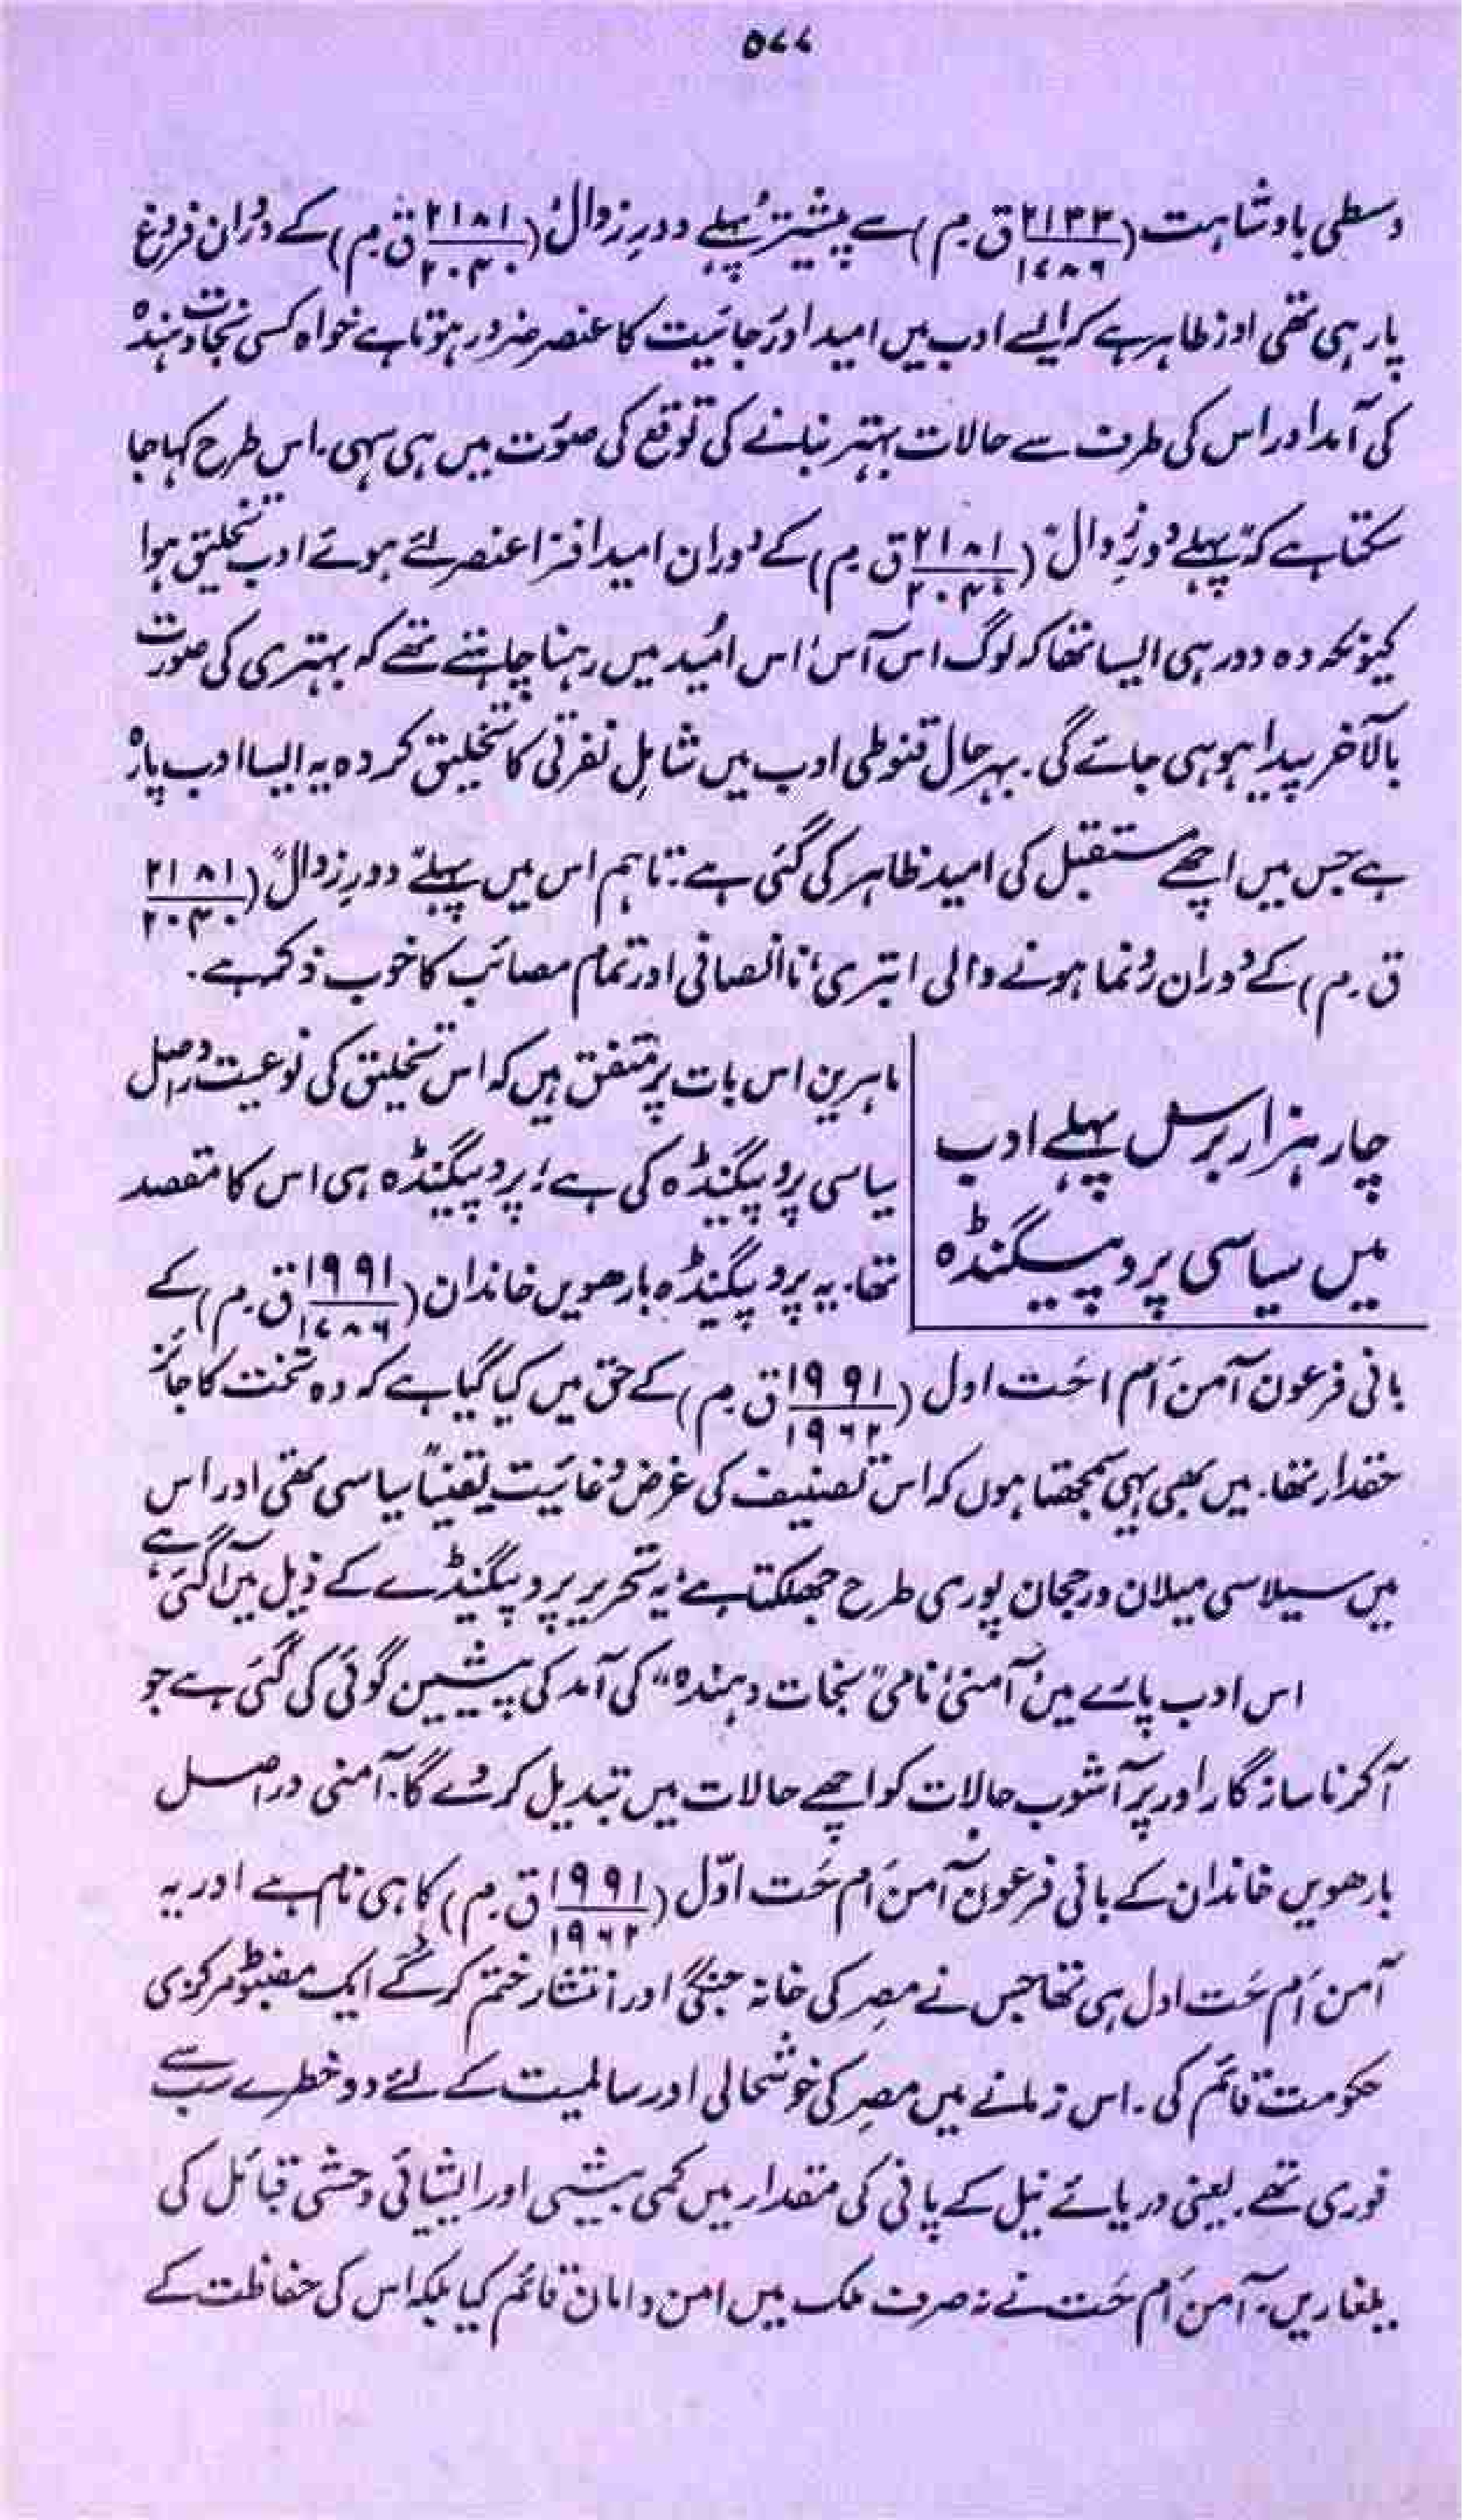 ۵۷۷
وسطی بادشاہت (۲۱۳۳/۱۷۸۶ ق۔م) سے پیشتر پہلے دورِ زوال (۲۱۸۱/۲۰۴۰ ق۔م) کے دوران فروغ
پا رہی تھی اور ظاہر ہے کہ ایسے ادب میں امید اور رَجائیت کا عنصر ضرور ہوتا ہے خواہ کسی نجات دہندہ
کی آمد اور اس کی طرف سے حالات بہتر بنانے کی توقع کی صورت میں ہی سہی۔ اس طرح کہا جا
سکتا ہے کہ "پہلے دورِ زوال" (۲۱۸۱/۲۰۴۰ ق۔م) کے دوران امید افزا عنصر لئے ہوئے ادب تخلیق ہوا
کیونکہ وہ دور ہی ایسا تھا کہ لوگ اس آس، اس اُمید میں رہنا چاہتے تھے کہ بہتری کی صورت
بالآخر پیدا ہو ہی جائے گی۔ بہر حال قنوطی ادب میں شامل نفرتی کا تخلیق کردہ یہ ایسا ادب پارہ
ہے جس میں اچھے مستقبل کی امید ظاہر کی گئی ہے۔ تاہم اس میں پہلے "دورِ زوال" (۲۱۸۱/۲۰۴۰
ق۔م) کے دوران رونما ہونے والی ابتری، ناانصافی اور تمام مصائب کا خوب ذکر ہے۔
چار ہزار برس پہلے ادب
میں سیاسی پروپیگنڈہ
ماہرین اس بات پر متفق ہیں کہ اس تخلیق کی نوعیت دراصل
سیاسی پروپیگنڈہ کی ہے؛ پروپیگنڈہ ہی اس کا مقصد
تھا۔ یہ پروپیگنڈہ بارھویں خاندان (۱۹۹۱/۱۷۸۶ ق۔م) کے
بانی فرعون آمن اَم احَت اول (۱۹۹۱/۱۹۶۲ ق۔م) کے حق میں کیا گیا ہے کہ وہ تخت کا جائز
حقدار تھا۔ میں بھی یہی سمجھتا ہوں کہ اس تصنیف کی غرض و غائیت یقیناً سیاسی تھی اور اس
میں سیلاسی میلان و رجحان پوری طرح جھلکتا ہے، یہ تحریر پروپیگنڈے کے ذیل میں آ گئی ہے
اس ادب پارے میں 'آمنی' نامی "نجات دہندہ" کی آمد کی پیشین گوئی کی گئی ہے جو
آ کر ناسازگار اور پر آشوب حالات کو اچھے حالات میں تبدیل کر دے گا۔ آمنی دراصل
بارھویں خاندان کے بانی فرعون آمن اَم حَت اوّل (۱۹۹۱/۱۹۶۲ ق۔م) کا ہی نام ہے اور یہ
آمن اَم حَت اول ہی تھا جس نے مصر کی خانہ جنگی اور انتشار ختم کر کے ایک مضبوط مرکزی
حکومت قائم کی۔ اس زمانے میں مصر کی خوشحالی اور سالمیت کے لئے دو خطرے سب سے
فوری تھے۔ یعنی دریائے نیل کے پانی کی مقدار میں کمی بیشی اور ایشیائی وحشی قبائل کی
یلغاریں۔ آمن اَم حَت نے نہ صرف ملک میں امن و امان قائم کیا بلکہ اس کی حفاظت کے